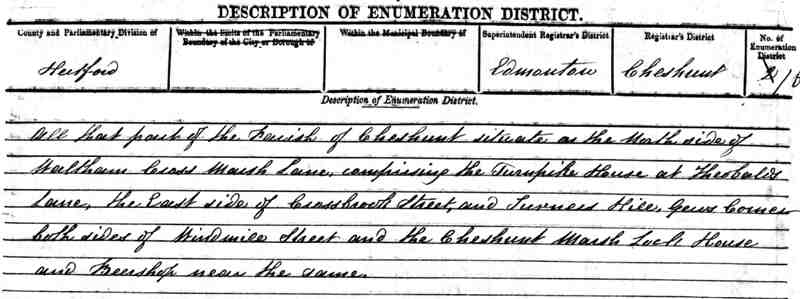 DESCRIPTION OF ENUMERATION DISTRICT.
County and Parliamentary Division of
Within the limits of the Parliamentary Boundary of the City or Borough of
Within the Municipal Boundary of
Superintendent Registrar's District
Registrar's District
No. of Enumeration District
Hertford
Edmonton
Cheshunt
Description of Enumeration District.
All that part of the Parish of Cheshunt situate as the North side of
Waltham Cross Marsh Lane, comprising the Turnpike House at Theobalds
Lane, the East side of Crossbrook Street, and Turners Hill, Gews Corner
both sides of Windmill Street and the Cheshunt Marsh Lock House
and Beershop near the same.